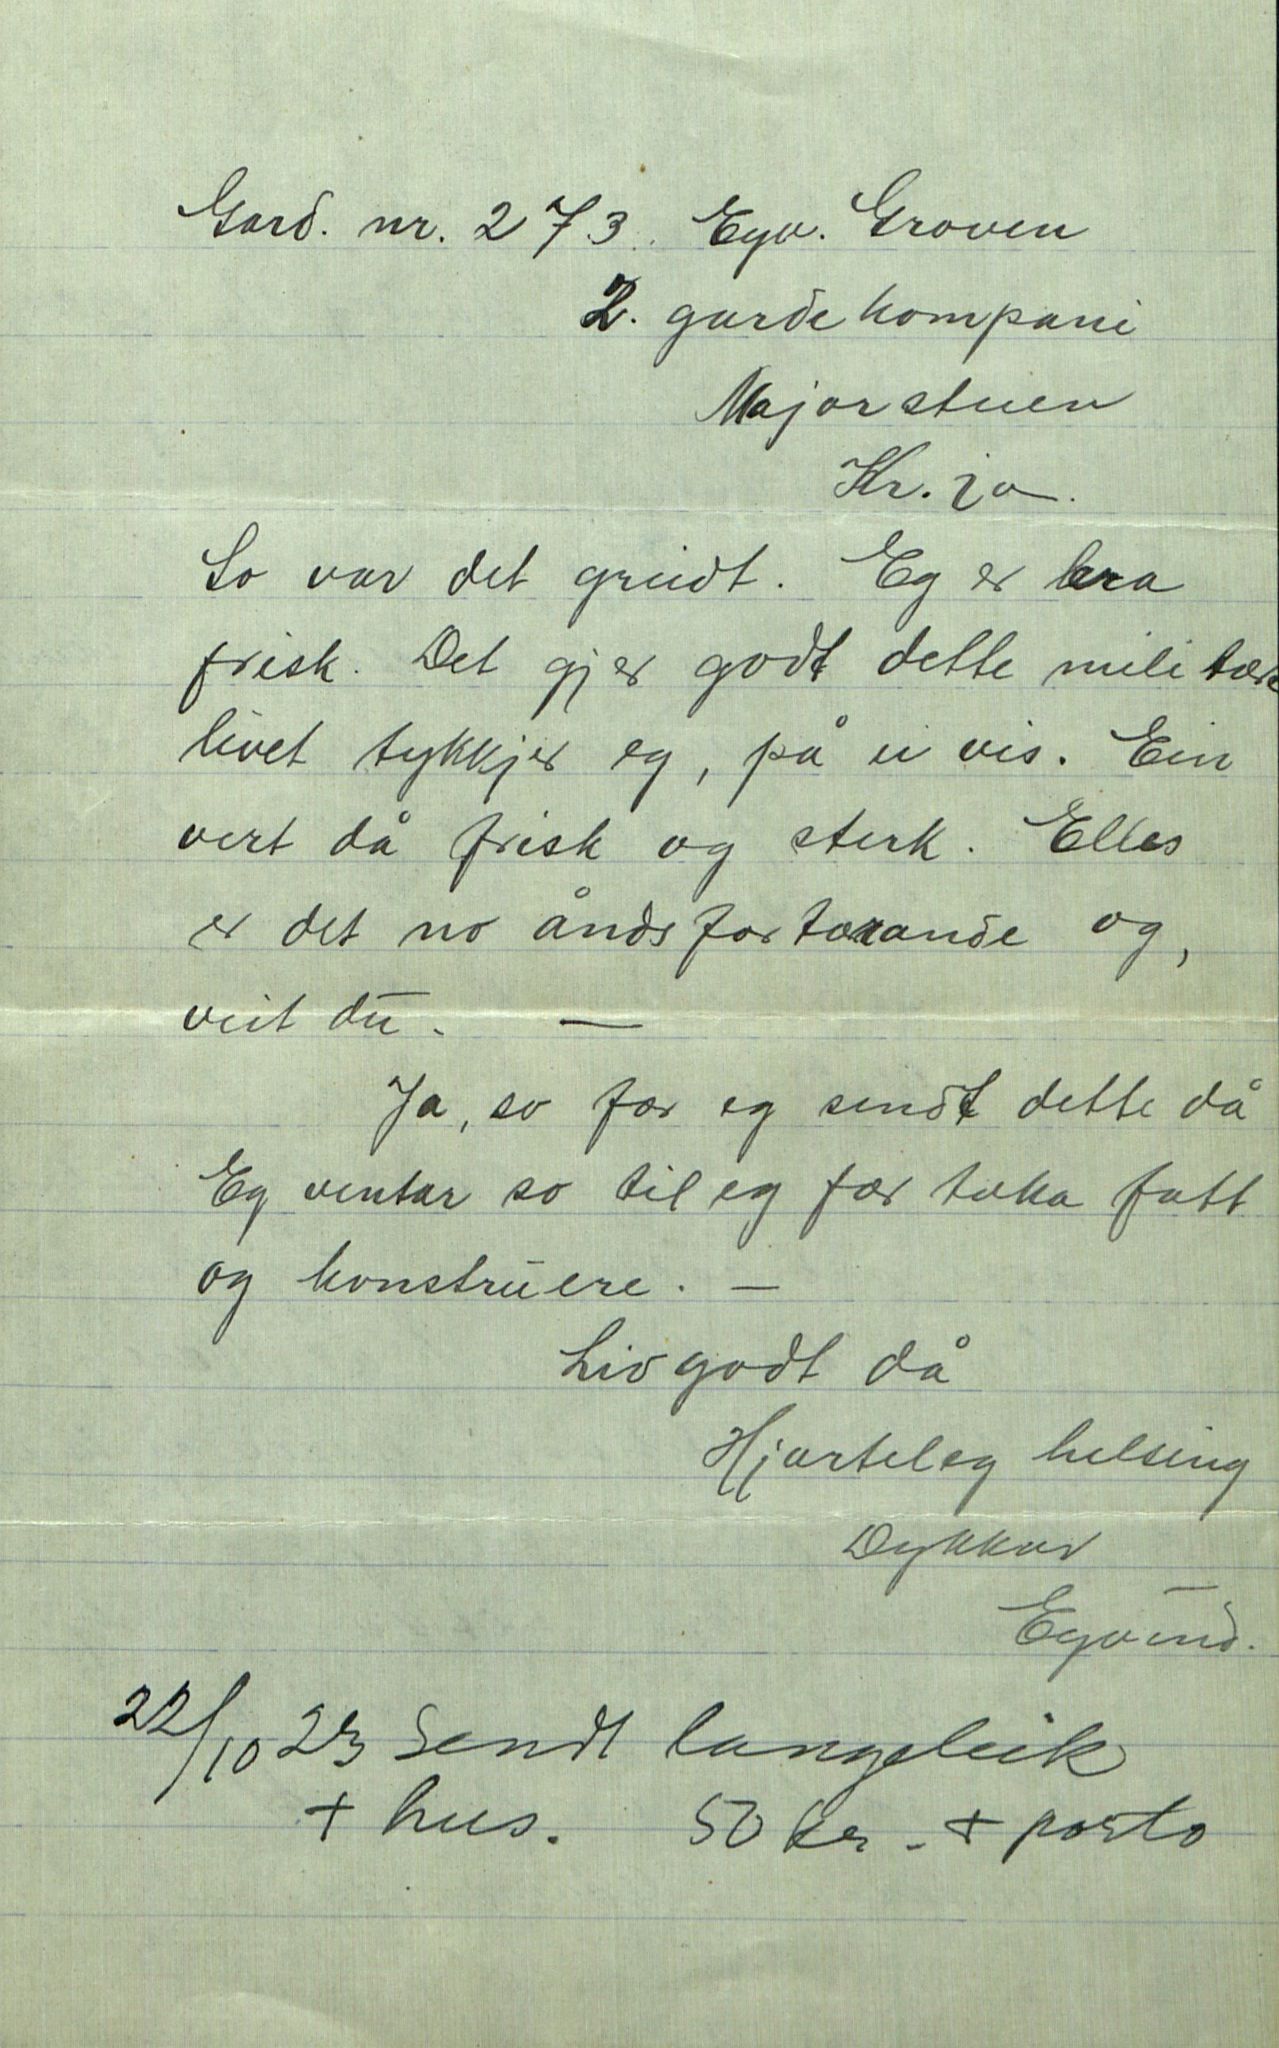 Gard. nr. 273. Eyv. Groven
2. gardekompani
Majorstuen
Kr.ia.
So var det greidt. Eg er bra
frisk. Det gjer godt dette militære
livet tykkjer eg, på ei vis. Ein
vert då frisk og sterk. Elles
er det no åndsfortærande og,
veit du. —
Ja, so fær eg sendt dette då
Eg ventar so til eg fær taka fatt
og konstruere. —
Liv godt då
Hjarteleg helsing
Dykkar
Eyvind.
22/10 23 Sendt langeleik
+ hus. 50 kr. + porto